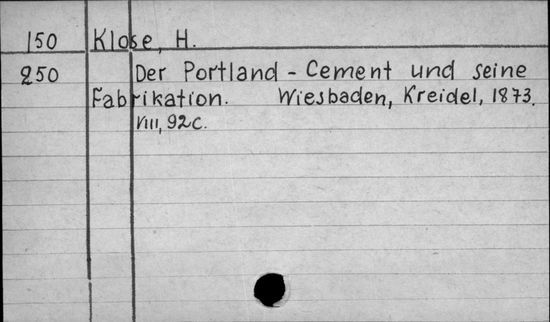 150 Klose, H.
250 Der Portland - Cement und seine
Fabrikation. Wiesbaden, Kreidel, 1873.
VIII, 92c.